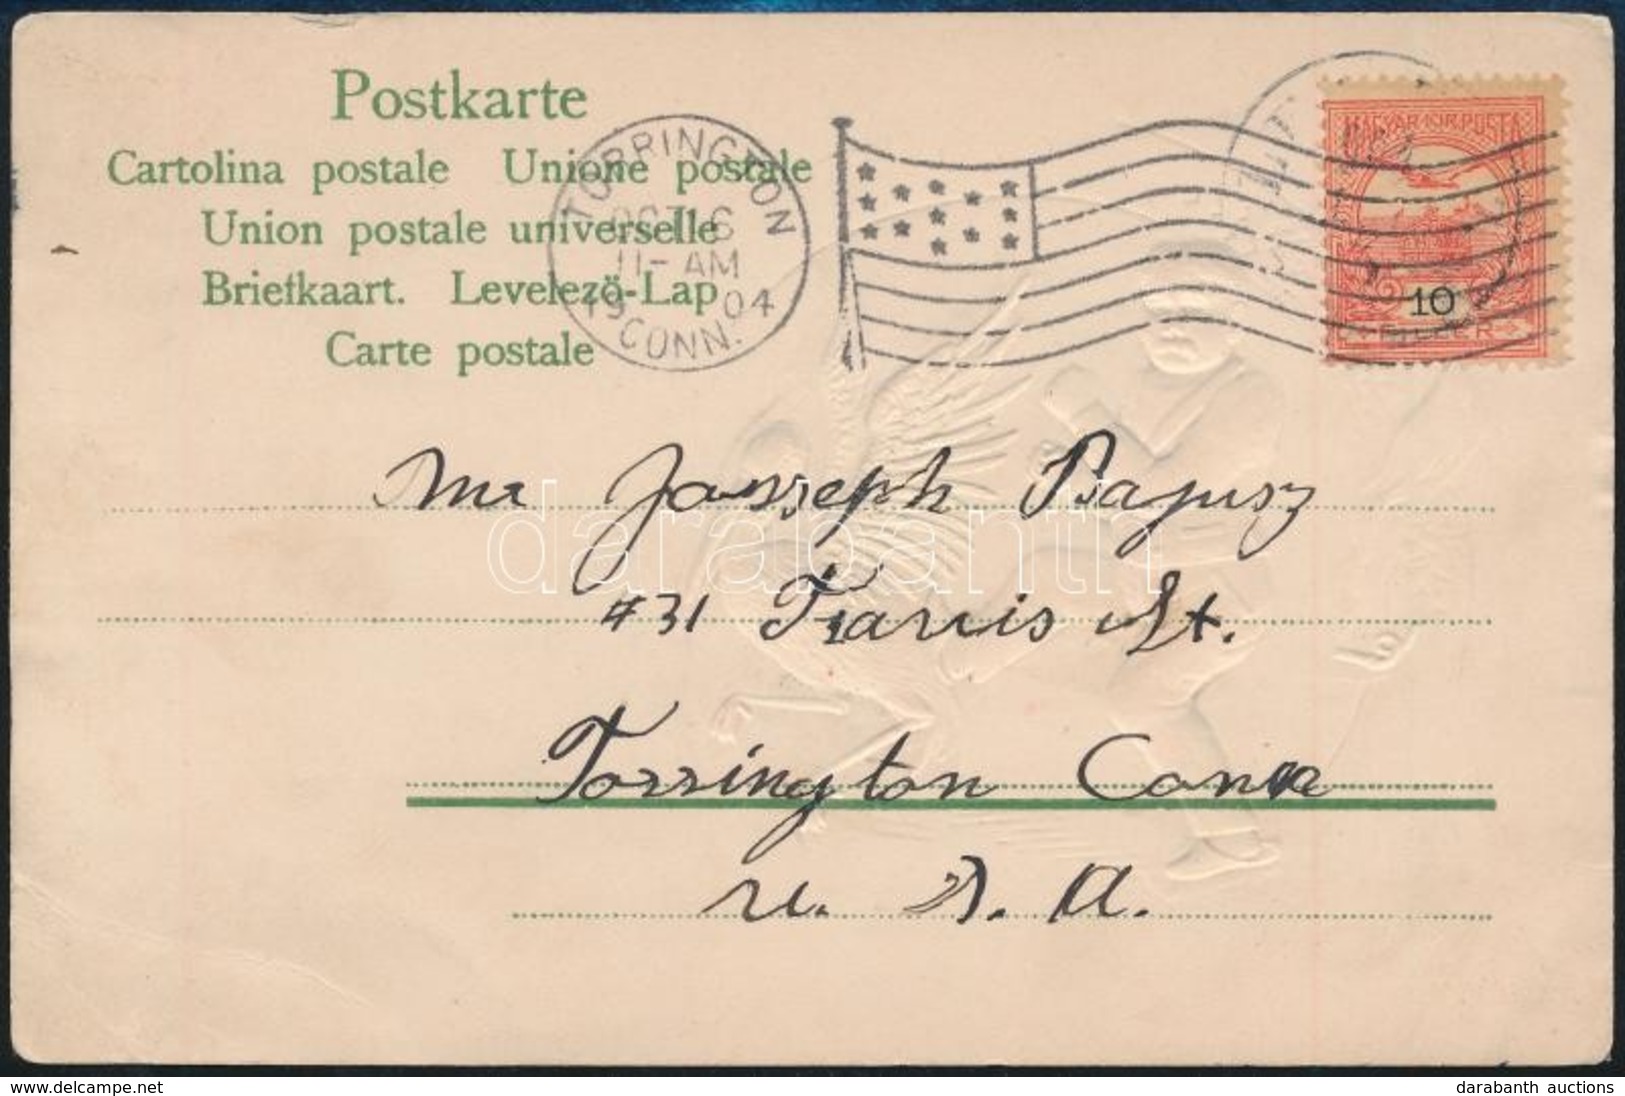 Postkarte
Cartolina postale Unione postale
Union postale universelle
Briefkaart. Levelezö-Lap
Carte postale
TORRINGTON
OCT 6
11-AM
1904
CONN.
MAGYAR KIR. POSTA
10
FILLER
Mr Jasszeph Bajusz
#31 Travis St.
Torrington Conn
U. S. A.
darabanth
www.delcampe.net
darabanth auctions